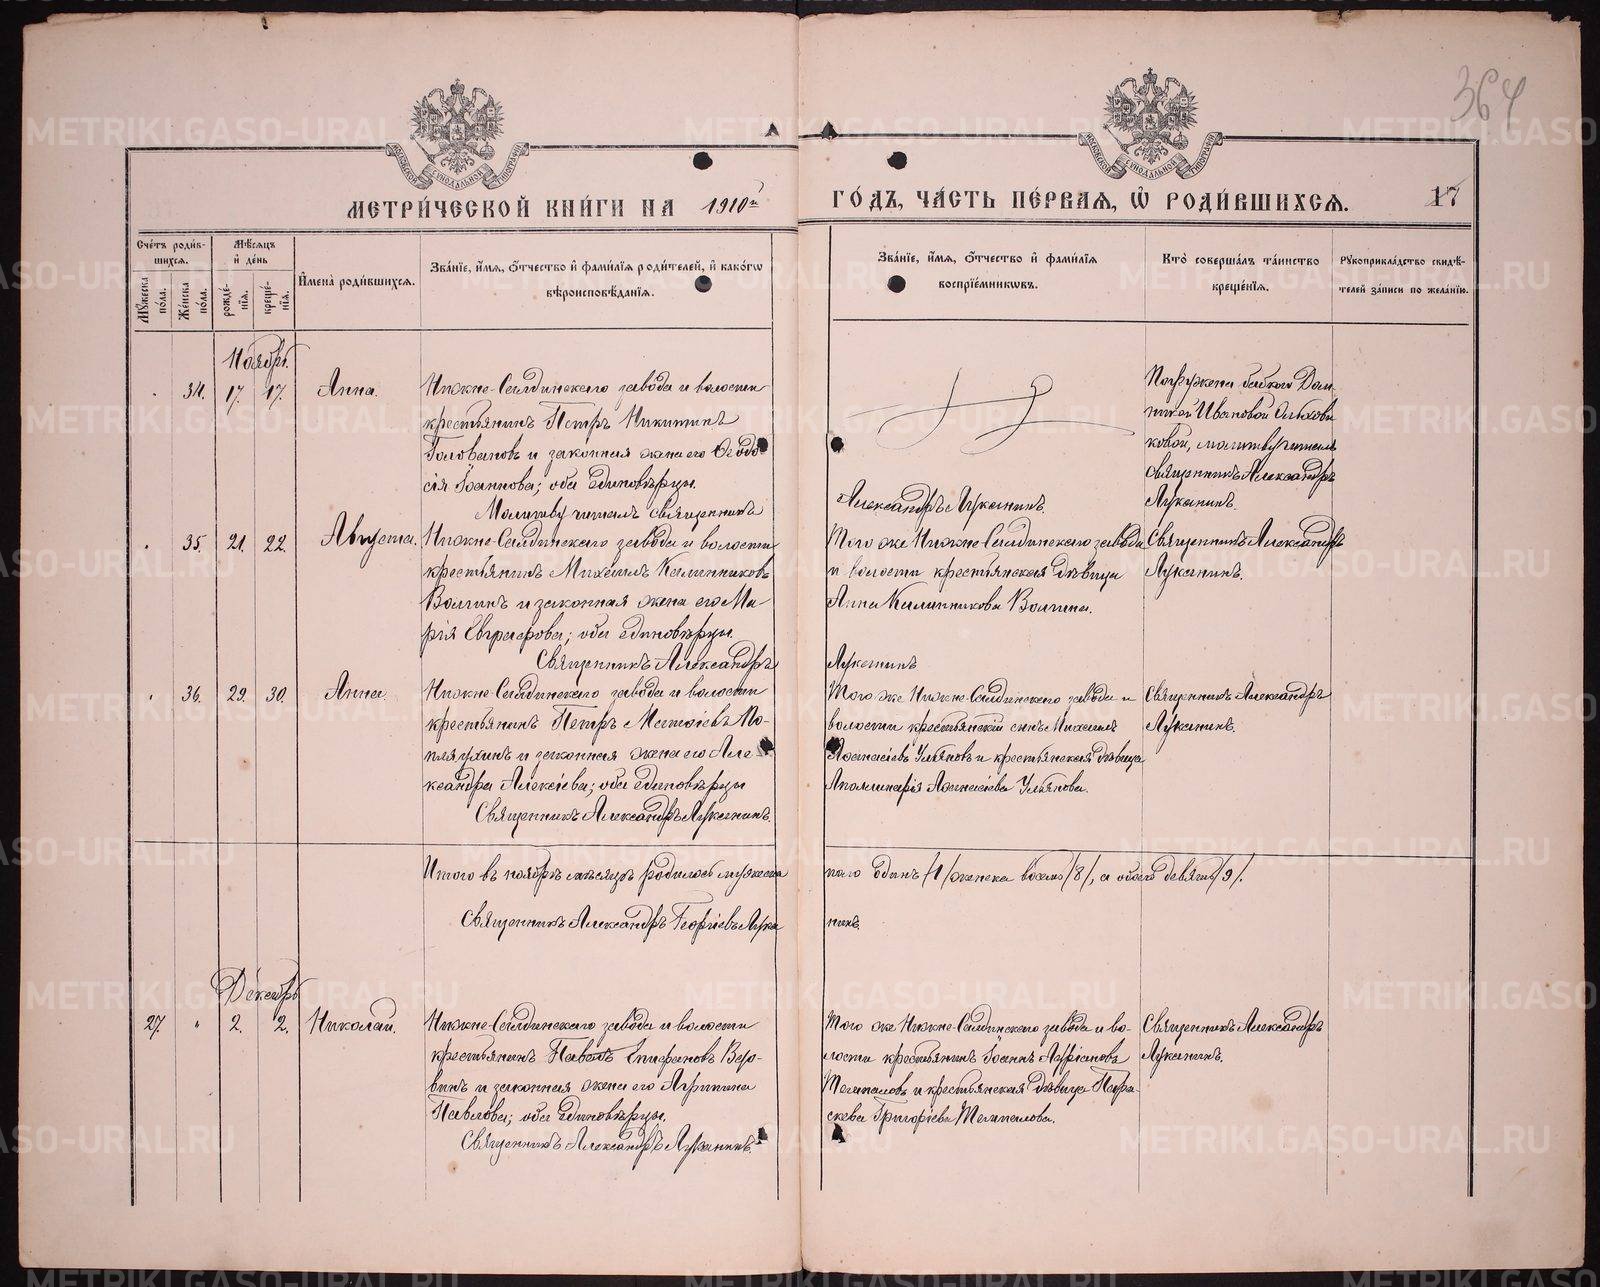 364
МЕТРИ́ЧЕСКОЙ КНИ́ГИ НА 1910й ГО́ДЪ, ЧА́СТЬ ПЕ́РВАЯ, Ѡ РОДИ́ВШИХСЯ.
17
Сче́тъ роди́в-
шихся.
Му́жеска
по́ла.
Же́нска
по́ла.
Мѣ́сяцъ
и де́нь
рожде́-
нїя.
креще́-
нїя.
Имена̀ роди́вшихся.
Зва́нїе, и́мя, о́тчество и фами́лїя роди́телей, и како́гѡ
вѣроисповѣ́данїя.
Зва́нїе, и́мя, о́тчество и фами́лїя
воспрїе́мникѡвъ.
Кто̀ соверша́лъ та́инство
креще́нїя.
Рукоприкла́дство свидѣ́-
телей за́писи по жела́нїю.
Ноябрь.
34. 17. 17. Анна.
Нижне-Салдинскаго завода и волости
крестьянинъ Петръ Никитинъ
Головановъ и законная жена его Ѳеодо
сія Іоаннова; оба единовѣрцы.
Молитву читалъ священникъ
Александръ Луканинъ.
Погружена бабкою Дом-
никой Ивановой
ковой, молитву читалъ
священникъ Александръ
Луканинъ.
35. 21. 22. Августа.
Нижне-Салдинскаго завода и волости
крестьянинъ Михаилъ Калинниковъ
Волгинъ и законная жена его Ма
рія Евграфова; оба единовѣрцы.
Священникъ Александръ
Луканинъ
Того же Нижне-Салдинскаго завода
и волости крестьянская дѣвица
Анна Калинникова Волгина.
Священникъ Александръ
Луканинъ.
36. 29. 30. Анна
Нижне-Салдинскаго завода и волости
крестьянинъ Петръ Матѳіевъ По-
пляухинъ и законная жена его Але-
ксандра Алексіева; оба единовѣрцы
Священникъ Александръ Луканинъ.
Того же Нижне-Салдинскаго завода и
волости крестьянскій сынъ Михаилъ
Аѳанасіевъ Ульяновъ и крестьянская дѣвица
Аполлинарія Аѳанасіева Ульянова.
Священникъ Александръ
Луканинъ.
Итого въ ноябрѣ мѣсяцѣ родилось мужеска
пола одинъ /1/ женска восемь /8/, а обоего девять /9/.
Священникъ Александръ Георгіевъ Лука
нинъ.
Декабрь
27. " 2. 2. Николай.
Нижне-Салдинскаго завода и волости
крестьянинъ Павелъ Епифановъ Вер-
винъ и законная жена его Агрипина
Павлова; оба единовѣрцы.
Священникъ Александръ Луканинъ.
Того же Нижне-Салдинскаго завода и во-
лости крестьянинъ Іоаннъ
и крестьянская дѣвица Пара-
скева Григоріева
Священникъ Александръ
Луканинъ.